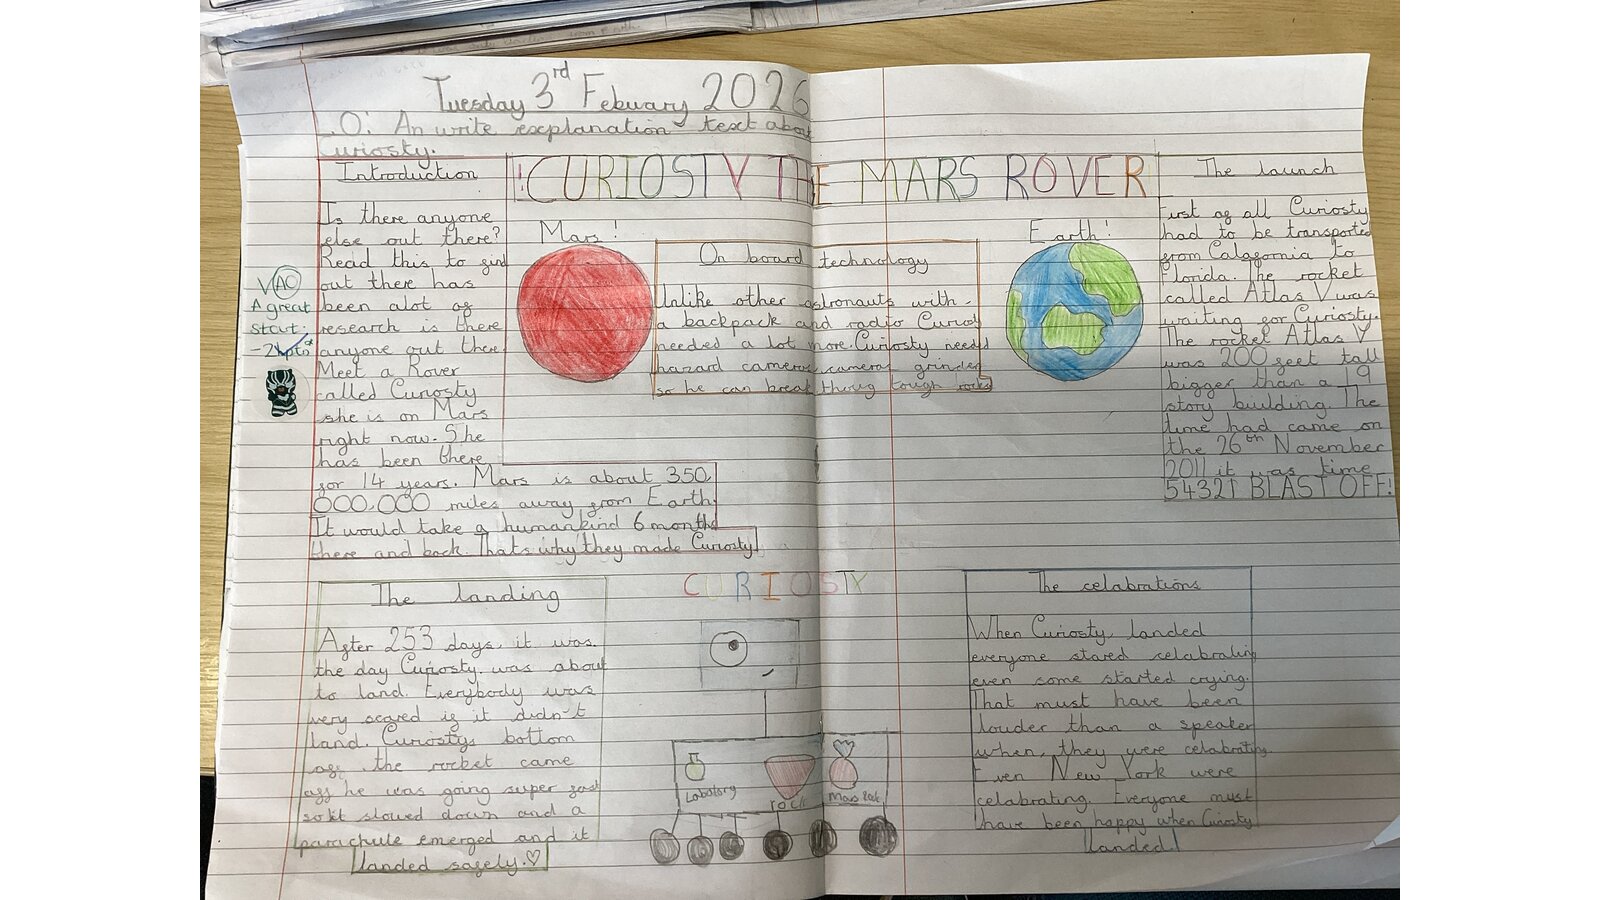 Tuesday 3rd Febuary 2026
.O: An write explanation text about
Curiosty.
CURIOSTY THE MARS ROVER
Introduction
Is there anyone
else out there?
Read this to find
out there has
been alot of
research is there
anyone out there
Meet a Rover
called Curiosty
she is on Mars
right now. She
has been there
for 14 years. Mars is about 350,
000,000 miles away from Earth.
It would take a humankind 6 months
there and back. Thats why they made Curiosty
VAO
A great
start.
Mars!
On board technology
Unlike other astronauts with
a backpack and radio Curiost
needed a lot more. Curiosty needed
hazard cameras cameras grinder
so he can break throug tough rocks
Earth!
The launch
First of all Curiosty
had to be transported
from Calafornia to
Florida. The rocket
called Atlas V was
waiting for Curiosty.
The rocket Atlas V
was 200 feet tall
bigger than a 19
story building. The
time had came on
the 26th November
2011 it was time
54321 BLAST OFF!
The landing
After 253 days, it was
the day Curiosty was about
to land. Everybody was
very scared if it didn't
land. Curiosty bottom
off the rocket came
off he was going super fast
so it slowed down and a
parachute emerged and it
landed safely.
CURIOSTY
Labotory
rock
Mars Rock
The celabrations
When Curiosty landed
everyone stared celabrating
even some started crying.
That must have been
louder than a speaker
when, they were celabrating.
Even New York were
celabrating. Everyone must
have been happy when Curiosty
landed.